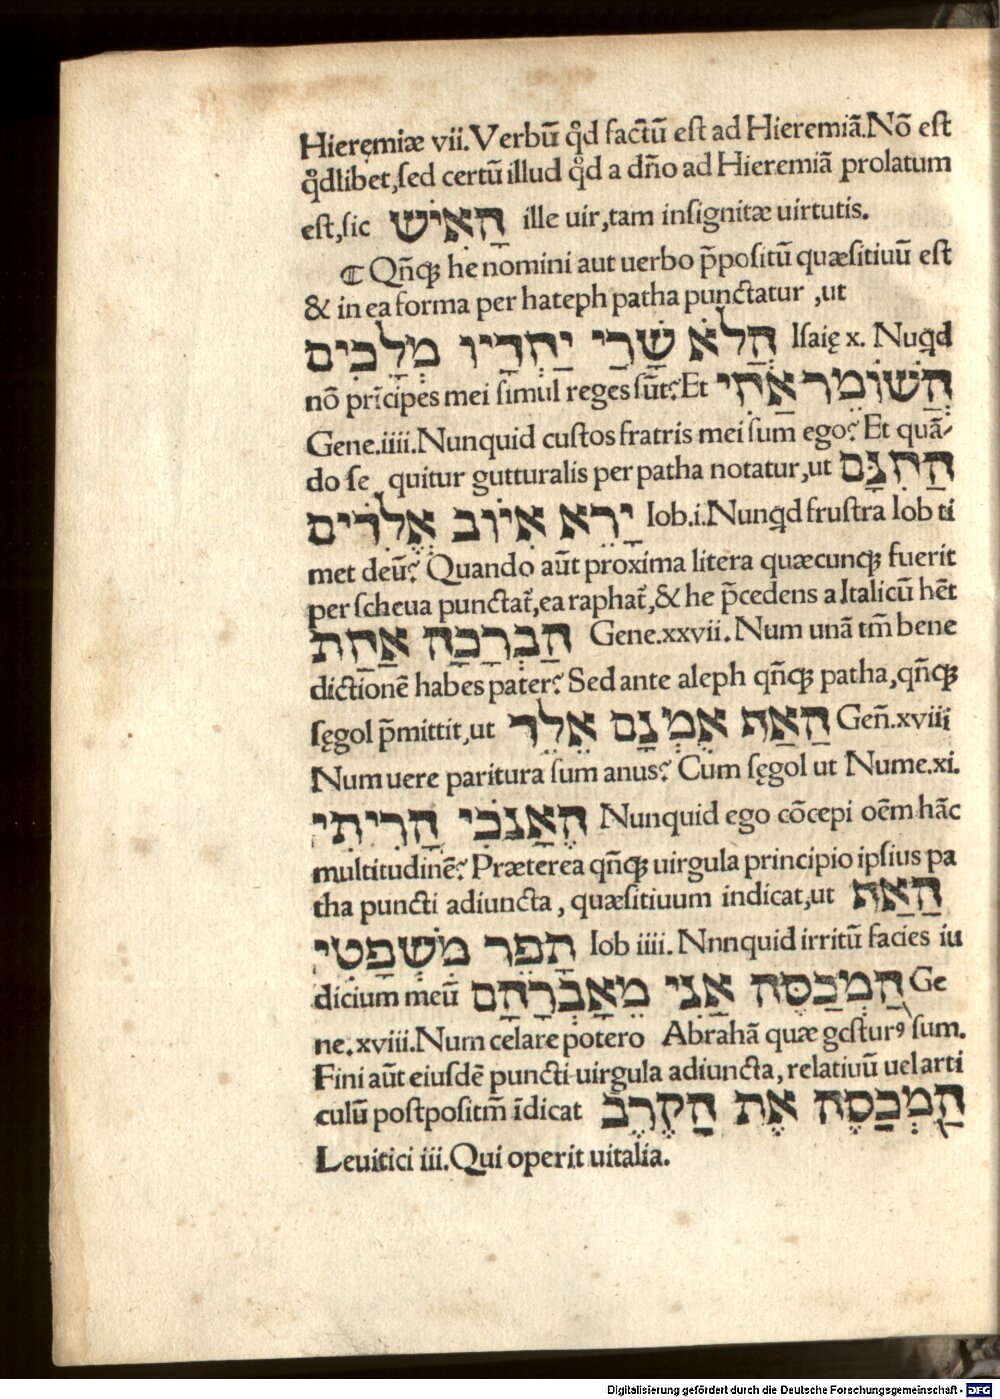 Hieremiæ vii. Verbū qd̊ factū est ad Hieremiā. Nō est
qd̊libet, sed certū illud qd̊ a dn̄o ad Hieremiā prolatum
est, sic הָאִישׁ ille uir, tam insignitæ uirtutis.
¶ Qn̄cꝗ he nomini aut uerbo p̄positū quæsitiuū est
& in ea forma per hateph patha punctatur , ut
הֲלֹא שָׂרַי יַחְדָּיו מְלָכִים Isaię x. Nuqd
nō prīcipes mei simul reges sūt? Et הֲשׁוֹמֵר אָחִי
Gene. iiii. Nunquid custos fratris mei sum ego? Et quā/
do se quitur gutturalis per patha notatur, ut הַחִנָּם
יָרֵא אִיּוֹב אֱלֹהִים Iob. i. Nunqd frustra Iob ti
met deū? Quando aūt proxima litera quæcunꝗ fuerit
per scheua punctat̄, ea raphat̄, & he p̄cedens a Italicū hēt
הַבְרָכָה אַחַת Gene. xxvii. Num unā tm̄ bene
dictionē habes pater? Sed ante aleph qn̄cꝗ patha, qn̄cꝗ
sęgol p̄mittit, ut הַאַף אֻמְנָם אֵלֵד Gen̄. xviii
Num uere paritura sum anus? Cum sęgol ut Nume. xi.
הֶאָנֹכִי הָרִיתִי Nunquid ego cōcepi oēm hāc
multitudinē? Præterea qn̄cꝗ uirgula principio ipsius pa
tha puncti adiuncta , quæsitiuum indicat, ut הַאַף
תּפר משְׁפָּטִי Iob iiii. Nnnquid irritū facies iu
dicium meū הַמְכַסֶּה אֲנִי מֵאַבְרָהָם Ge
ne. xviii. Num celare potero Abrahā quæ gesturꝰ sum.
Fini aūt eiusdē puncti uirgula adiuncta, relatiuū uel arti
culū postpositm̄ īdicat הַמְכַסֶּה אֶת הַקֶּרֶב
Leuitici iii. Qui operit uitalia.
Digitalisierung gefördert durch die Deutsche Forschungsgemeinschaft - DFG